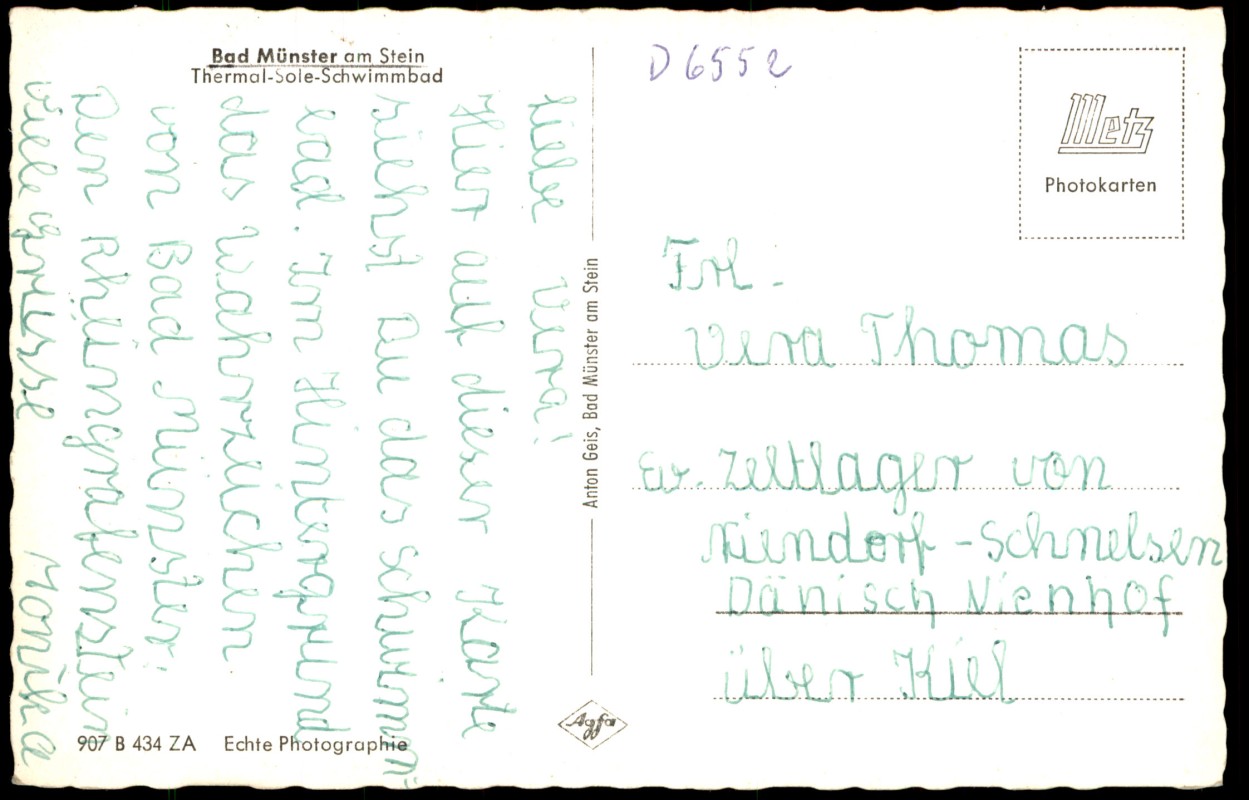 Bad Münster am Stein
Thermal-Sole-Schwimmbad
Liebe Vera!
Hier auf dieser Karte
siehst Du das Schwimm-
bad. Im Hintergrund
das Wahrzeichen
von Bad Münster,
den Rheingrafenstein
Viele Grüsse Monika
907 B 434 ZA Echte Photographie
Anton Geis, Bad Münster am Stein
Agfa
D 6552
Metz
Photokarten
Frl.
Vera Thomas
Ev. Zeltlager von
Niendorf-Schnelsen
Dänisch Nienhof
über Kiel